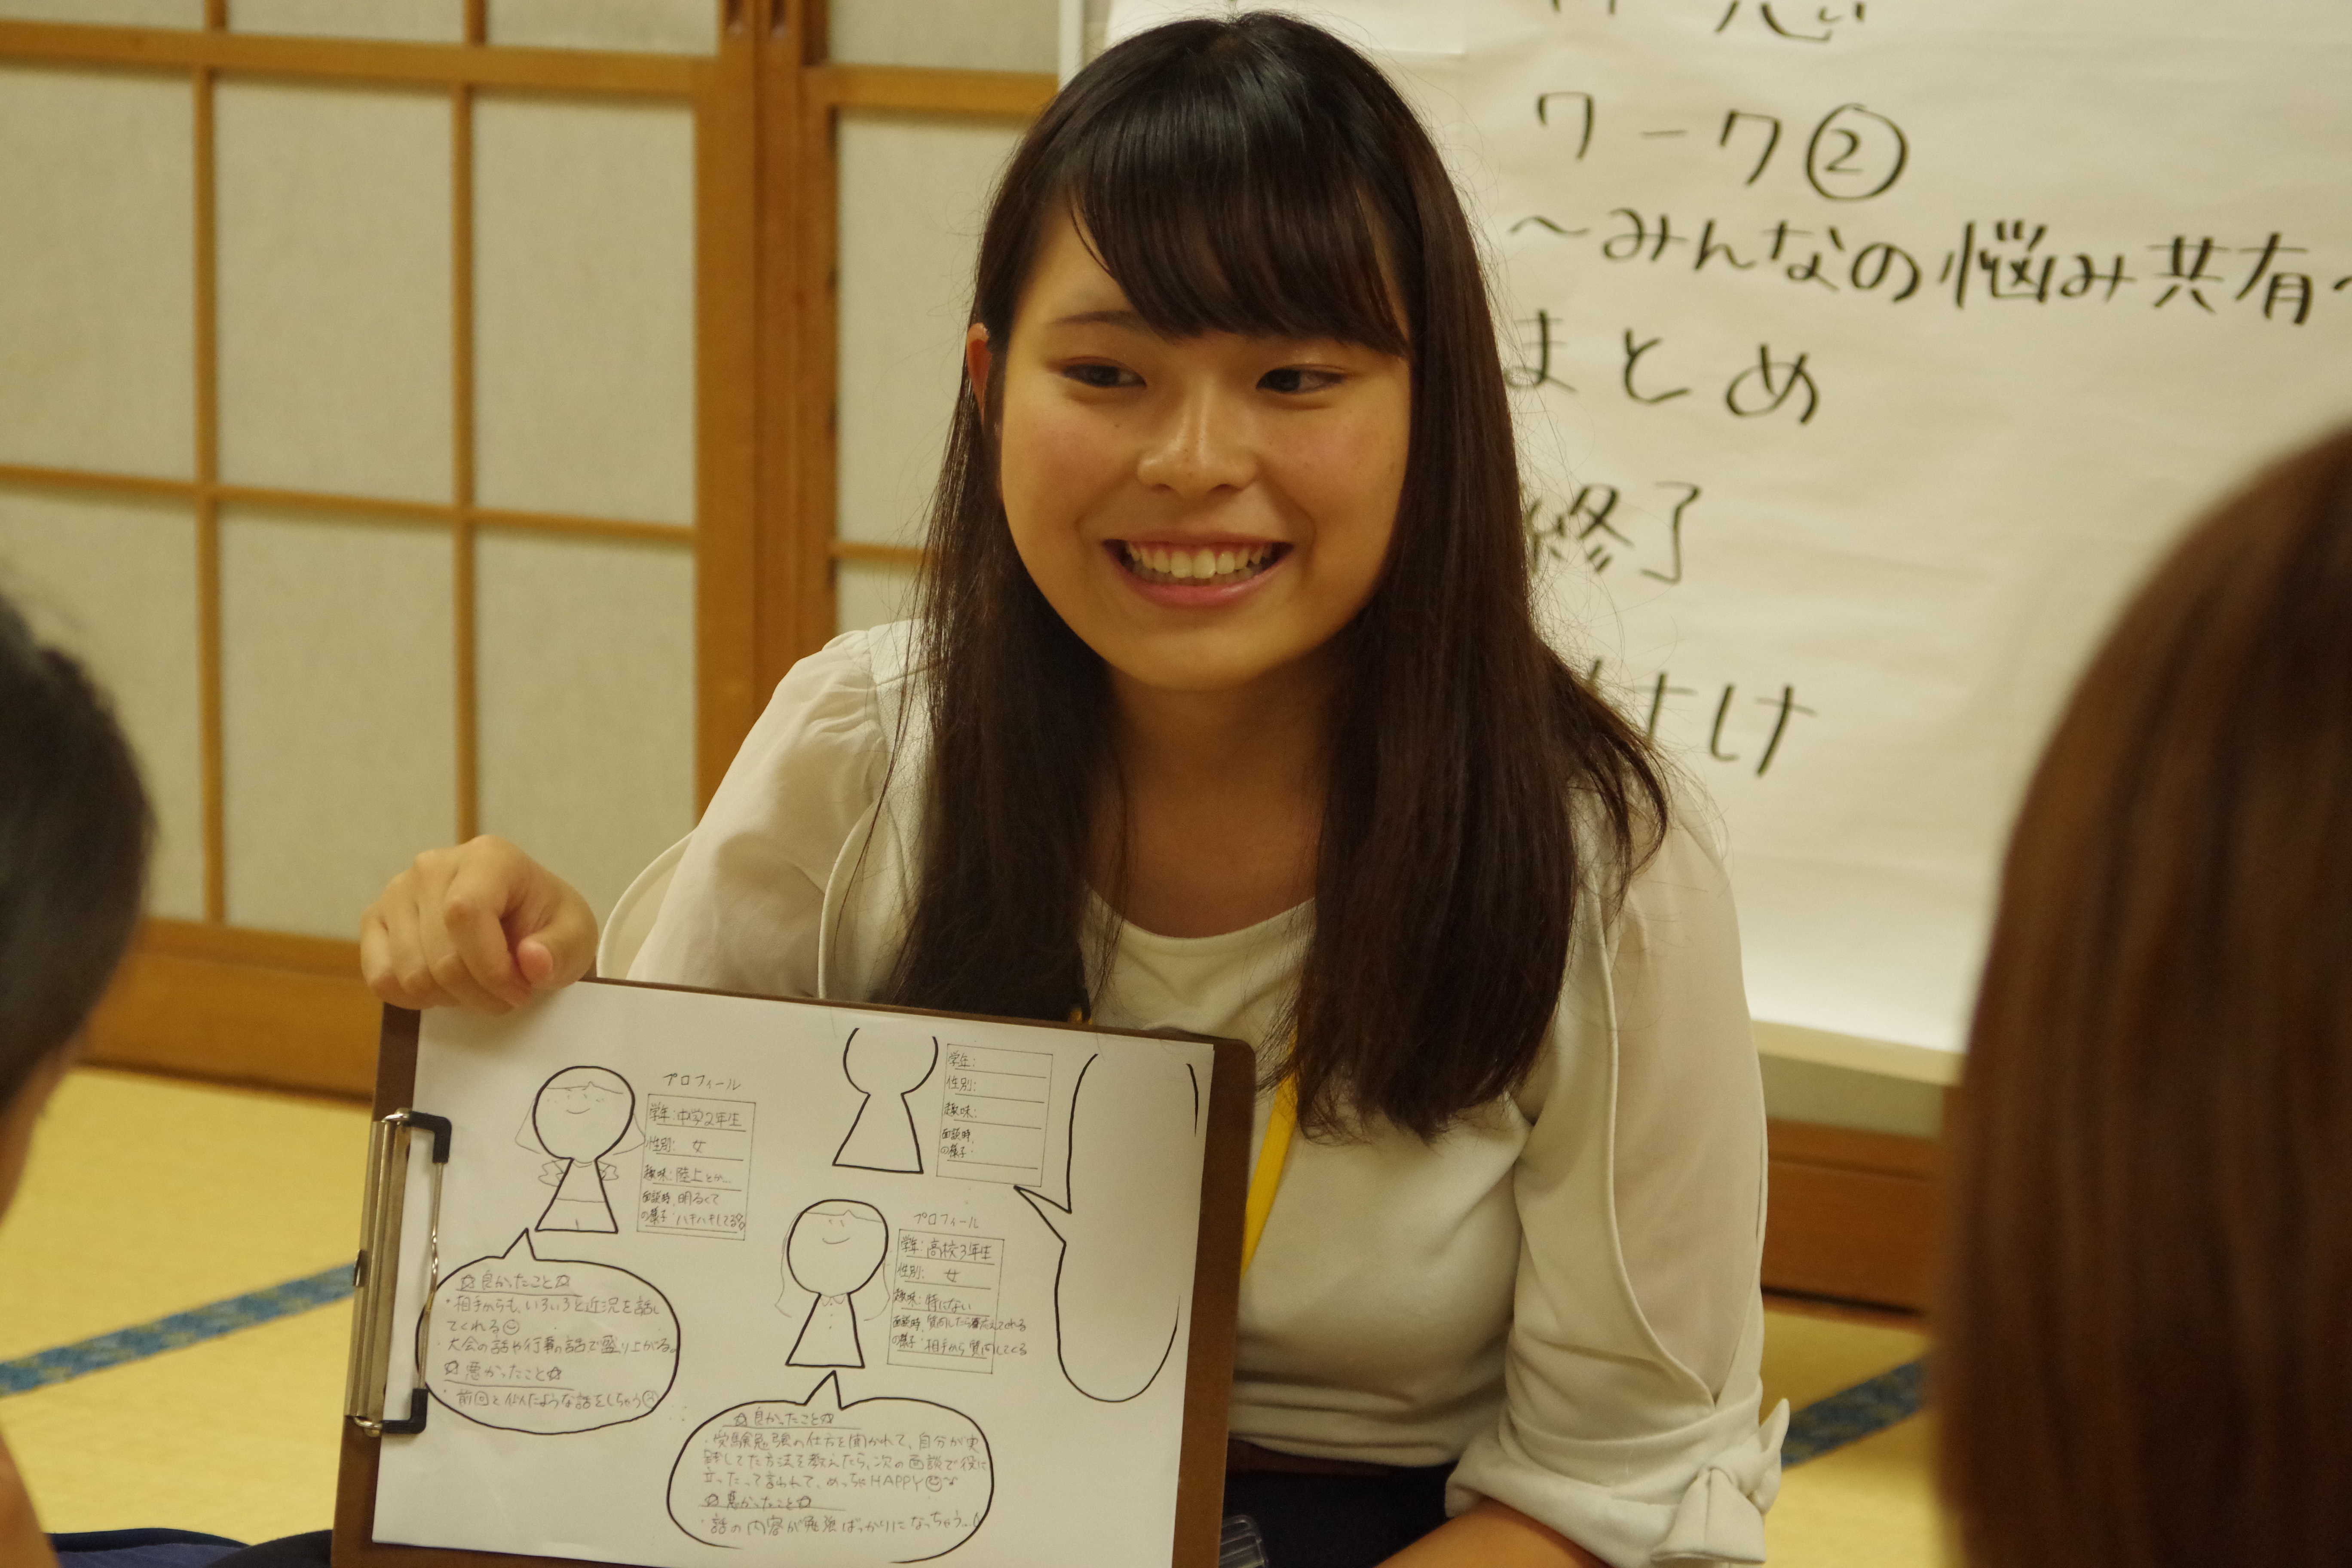 ワーク②
～みんなの悩み共有～
まとめ
終了
プロフィール
学年：中学2年生
性別：女
趣味：陸上とか…
面談時の様子：明るくて
ハキハキしてる
☆良かったこと☆
・相手からも、いろいろと近況を話し
てくれる
・大会の話や行事の話で盛り上がる。
☆悪かったこと☆
・前回と似たような話をしちゃう
学年：
性別：
趣味：
面談時
の様子：
プロフィール
学年：高校3年生
性別：女
趣味：特にない
面談時 質問したら答えてくれる
の様子：相手から質問してくる
☆良かったこと☆
・受験勉強の仕方を聞かれて、自分が実
践してた方法を教えたら、次の面談で役に
立ったって言われて、めっちゃHAPPY
☆悪かったこと☆
・話の内容が勉強ばっかりになっちゃう。